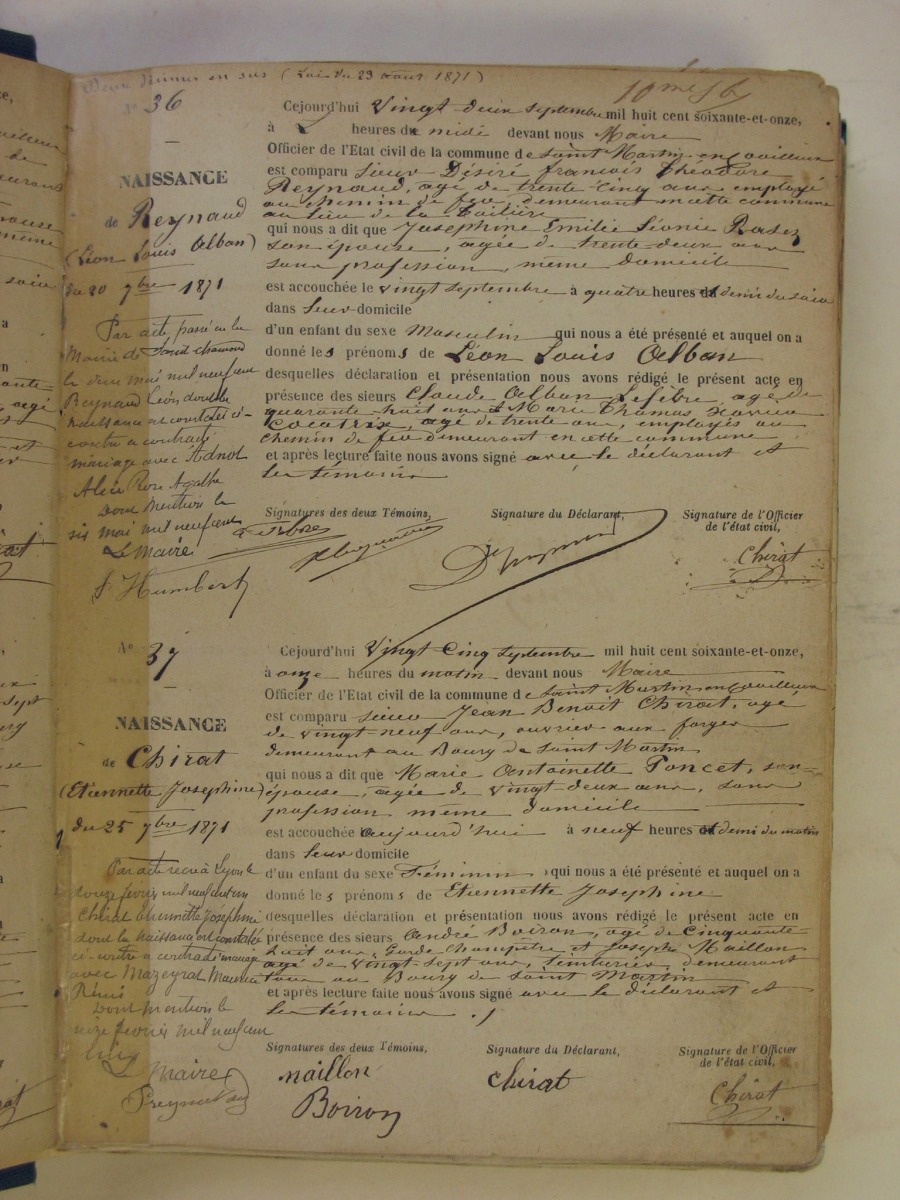 en sus (Loi du 23 aout 1871)
10me
No 36
NAISSANCE
de Reynaud
(Léon Louis Alban)
du 20 7bre 1871
Par acte passé en la
Mairie de Saint-chamond
le deux mai mil neuf cent
Reynaud Léon dont la
naissance est constatée ci-
contre a contracté
mariage avec
Alice Rose Agathe
Dont Mention le
six mai mil neuf cent
Le Maire
Humbert
Cejourd'hui Vingt deux Septembre mil huit cent soixante-et-onze,
à heures de midi devant nous Maire
Officier de l'Etat civil de la commune de Saint Martin en Coailleux
est comparu Sieur Désiré françois Théodore
Reynaud, agé de trente cinq ans employé
au chemin de fer, demeurant en cette commune
au lieu de la
qui nous a dit que Josephine Emilie Léonie
son épouse, agée de trente-deux ans
sans profession, même domicile
est accouchée le vingt septembre à quatre heures et demi du soir
dans leur domicile
d'un enfant du sexe Masculin qui nous a été présenté et auquel on a
donné les prénoms de Léon Louis Alban
desquelles déclaration et présentation nous avons rédigé le présent acte en
présence des sieurs Claude Alban Lefèbre, agé de
quarante huit ans & Marie Thomas Xavier
agé de trente ans, employés au
chemin de fer demeurant en cette commune
et après lecture faite nous avons signé avec le déclarant et
les témoins
Signatures des deux Témoins,
Signature du Déclarant,
Signature de l'Officier
de l'état civil,
Chirat
No 37
NAISSANCE
de Chirat
(Etiennette Josephine)
du 25 7bre 1871
Par acte recu à Lyon le
douze fevrier mil neuf cent cinq
Chirat Etiennette Joséphine
dont la naissance est constatée
ci-contre a contracté mariage
avec Mazeyrat Maurice
Rémis
Dont mention le
seize fevrier mil neuf cent
cinq
Maire
Cejourd'hui Vingt Cinq Septembre mil huit cent soixante-et-onze,
à onze heures du matin devant nous Maire
Officier de l'Etat civil de la commune de Saint Martin en Coailleux
est comparu sieur Jean Benoit Chirat, agé
de vingt-neuf ans, ouvrier aux forges
demeurant au Bourg de Saint Martin
qui nous a dit que Marie Antoinette Poncet, son
épouse, agée de vingt deux ans, sans
profession même domicile
est accouchée aujourd'hui à neuf heures et demi du matin
dans leur domicile
d'un enfant du sexe Féminin qui nous a été présenté et auquel on a
donné les prénoms de Etiennette Josephine
desquelles déclaration et présentation nous avons rédigé le présent acte en
présence des sieurs André Boiron, agé de Cinquante
huit ans, Garde Champêtre et Joseph Maillon
agé de vingt-sept ans, teinturier, demeurant
tous au Bourg de Saint Martin
et après lecture faite nous avons signé avec le déclarant et
les témoins ./
Signatures des deux Témoins,
Signature du Déclarant,
Signature de l'Officier
de l'état civil,
Maillon
Chirat
Chirat
Boiron